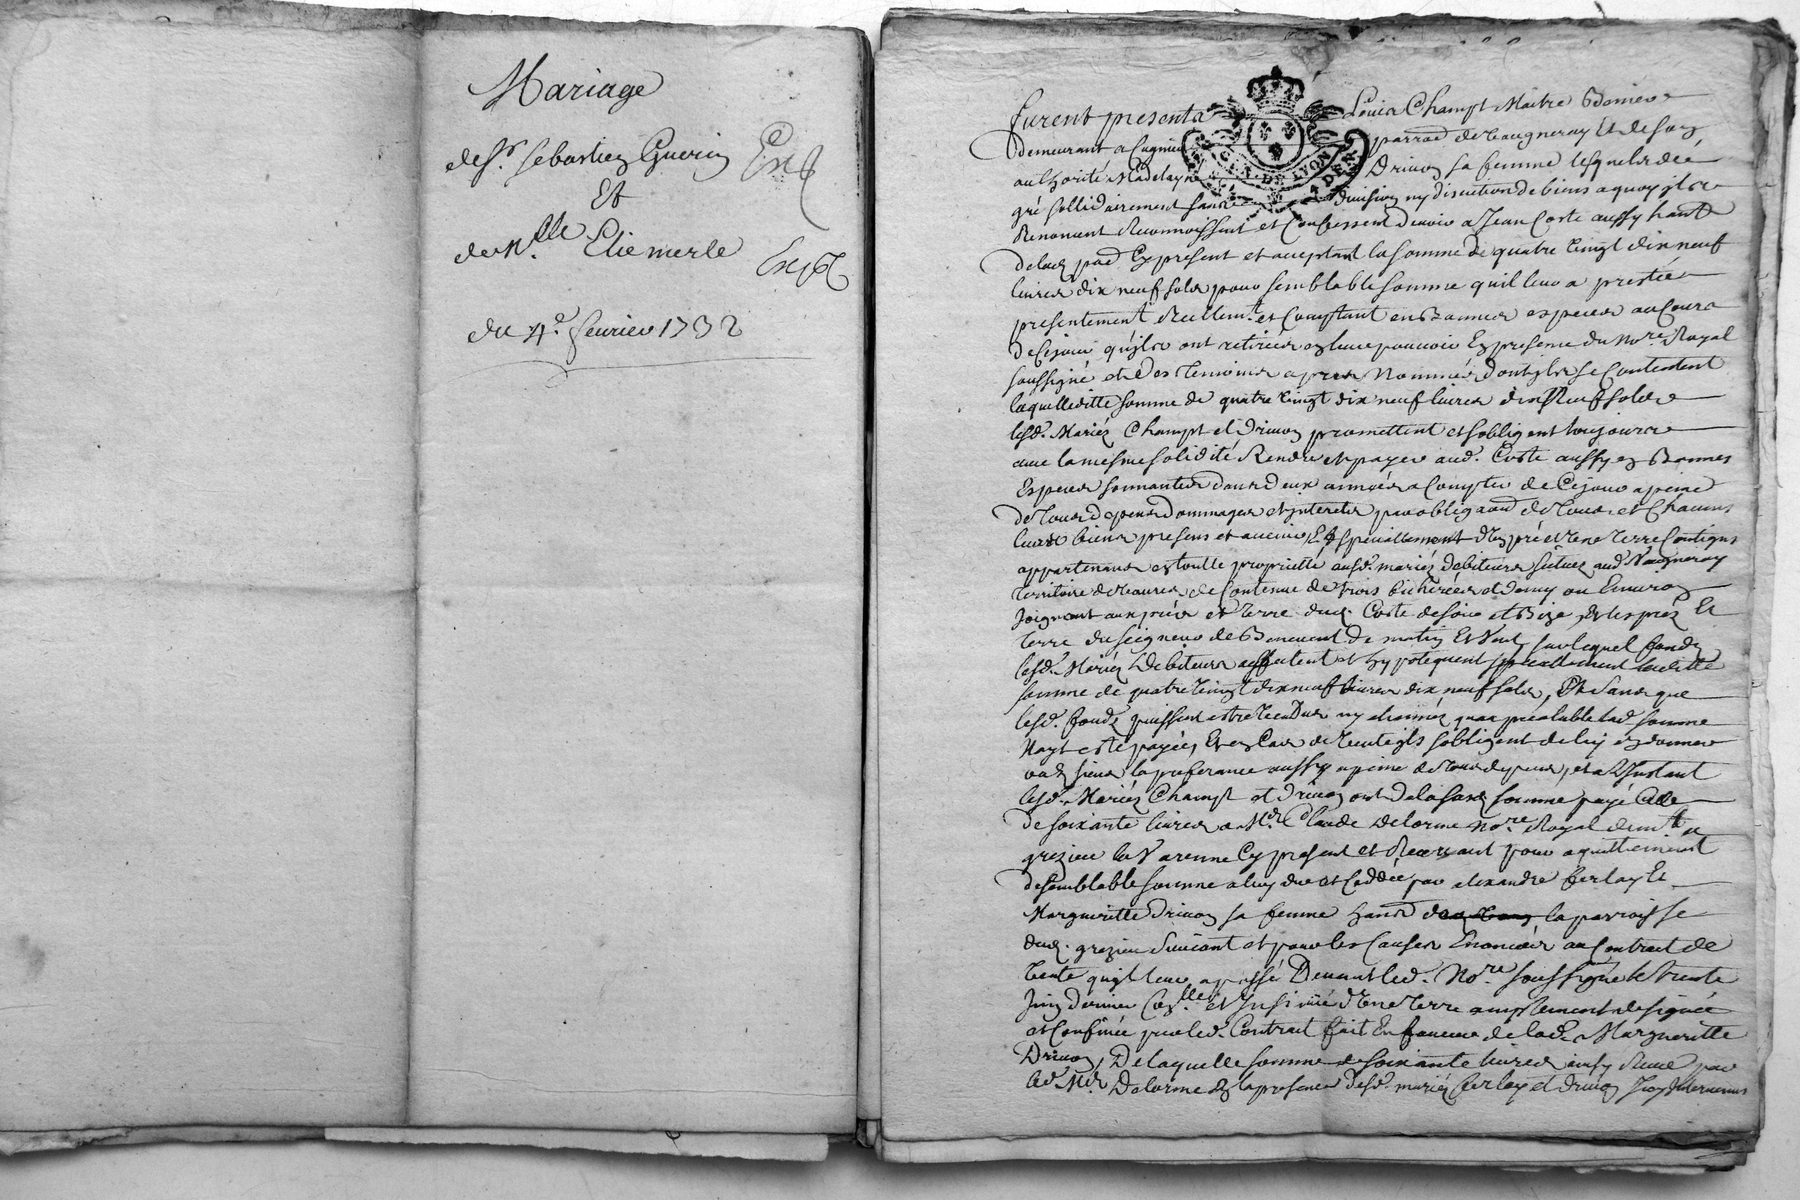 Mariage
de Sr. Sebastien Guerin
Et
de Dlle. Eliemerle
du 4e. fevrier 1732
furent presents Louis Champt Maitre
demeurant a parroisse de Vaugneray Et de son
authorité Madelayne Drivon sa femme lesquels de
gré sollidairement sans division ny discution de biens a quoy ils
Renoncent Reconnoissent et Confessent devoir a Jean Coste aussy
Cy present et acceptant la somme de quatre vingt dix neuf
livres dix neuf sols pour semblable somme quil leur a prestée
presentement Reellemt. et Comptant en Bonnes especes au Cours
de Cejour quils ont retirée en leur pouvoir En presence du Nore. Royal
soussigné et des temoins apres Nommés dont ils se Contentent
laquelle ditte somme de quatre vingt dix neuf livres dix Neuf sols
lesd. Mariez Champt et Drivon promettent et sobligent toujours
avec la mesme solidité Rendre et payer aud. Coste aussy en Bonnes
Especes sonnantes dans deux années a Compter de Cejour a peine
de tous depens dommages et interets par obligaon de tous et Chacuns
leurs biens presens et avenir, Et speciallement d'un pré et une terre Contigus
appartenans en toutte proprietté ausd. mariez debiteurs situez aud. Vaugneray
territoire de de Contenue de trois bicherées et demy ou Environ
Joignant aux prés et terre dud. Coste de soir et Bize, Et les prez Et
terre du seigneur de de matin Et Vent sur lequel fonds
lesd. Mariez debiteurs affectent et hypotequent speciallement laditte
somme de quatre vingt dix neuf livres dix neuf sols, Et Sans que
lesd. fonds puissent estre Vendus ny alienéz quau prealable lad. somme
Nayt esté payée, Et en Cas de Vente ils sobligent de luy en donner
la preferance aussy a peine de tous depens, et a L'Instant
lesd. Mariez Champt et Drivon ont de la susd. somme payé Celle
de soixante livres a Me. Claude Delorme Nore. Royal demt. a
grezieu la Varenne Cy present et Recevant pour aquittement
de semblable somme a luy due et Ceddée par alexandre ferlay Et
Margueritte Drivon sa femme de la parroisse
dud. grezieu Suivant et pour les Causes Enoncées au Contrat de
Vente quil leur a passé Devant led. Nore. soussigné le trente
Juin dernier Conllé. et Insinué d'une terre amplement designée
et Confinée par led. Contrat fait En faveur de lad. Margueritte
Drivon, De laquelle somme de soixante livres ainsy Reçue par
led. Me. Delorme En la presence desd. mariez ferlay et Drivon